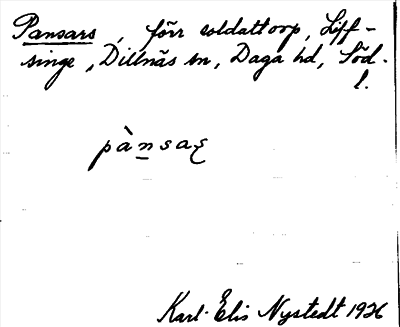 Pansars, förr soldattorp, Liff-
singe, Dillnäs sn, Daga hd, Söd.
l.
pànsaʂ
Karl-Elis Nystedt 1926